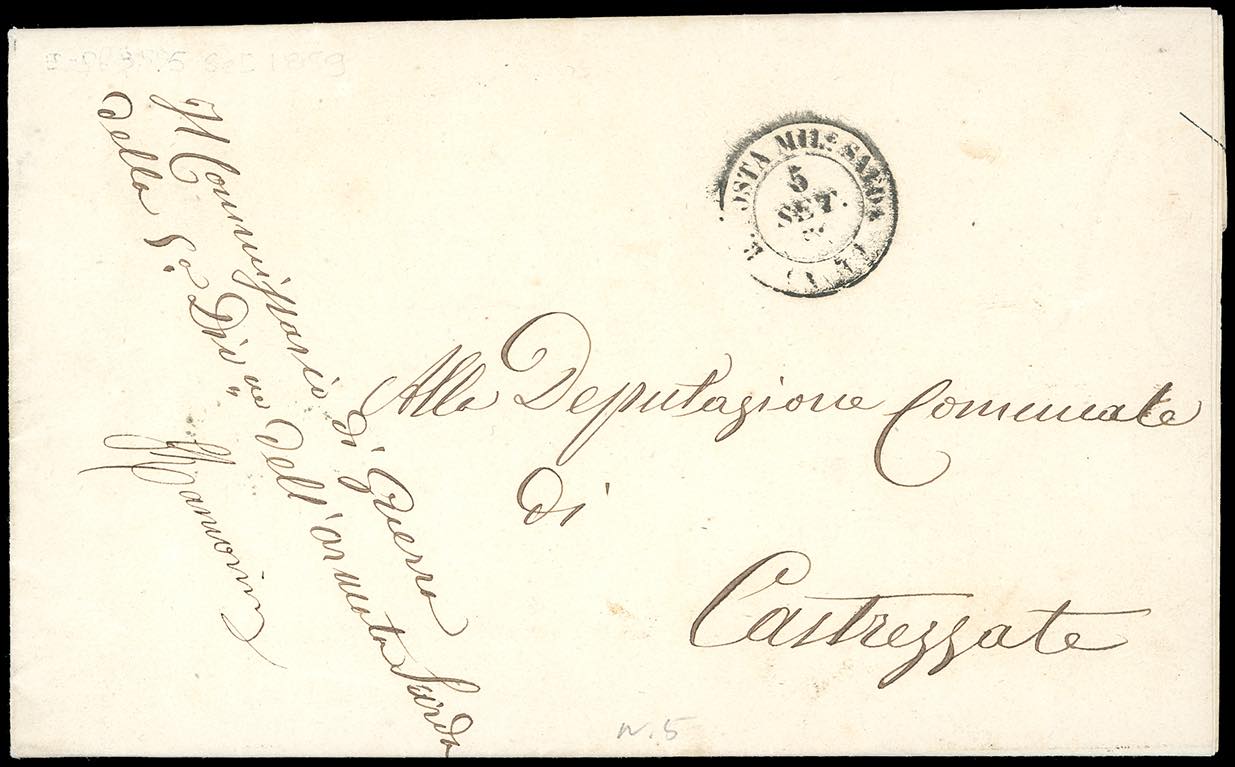 Il Commissario di Guerra
della 5.a Div.ne dell'armata Sarda
R. POSTA MIL.E SARDA
5
SET.
Alla Deputazione Comunale
di
Castrezzate
N. 5